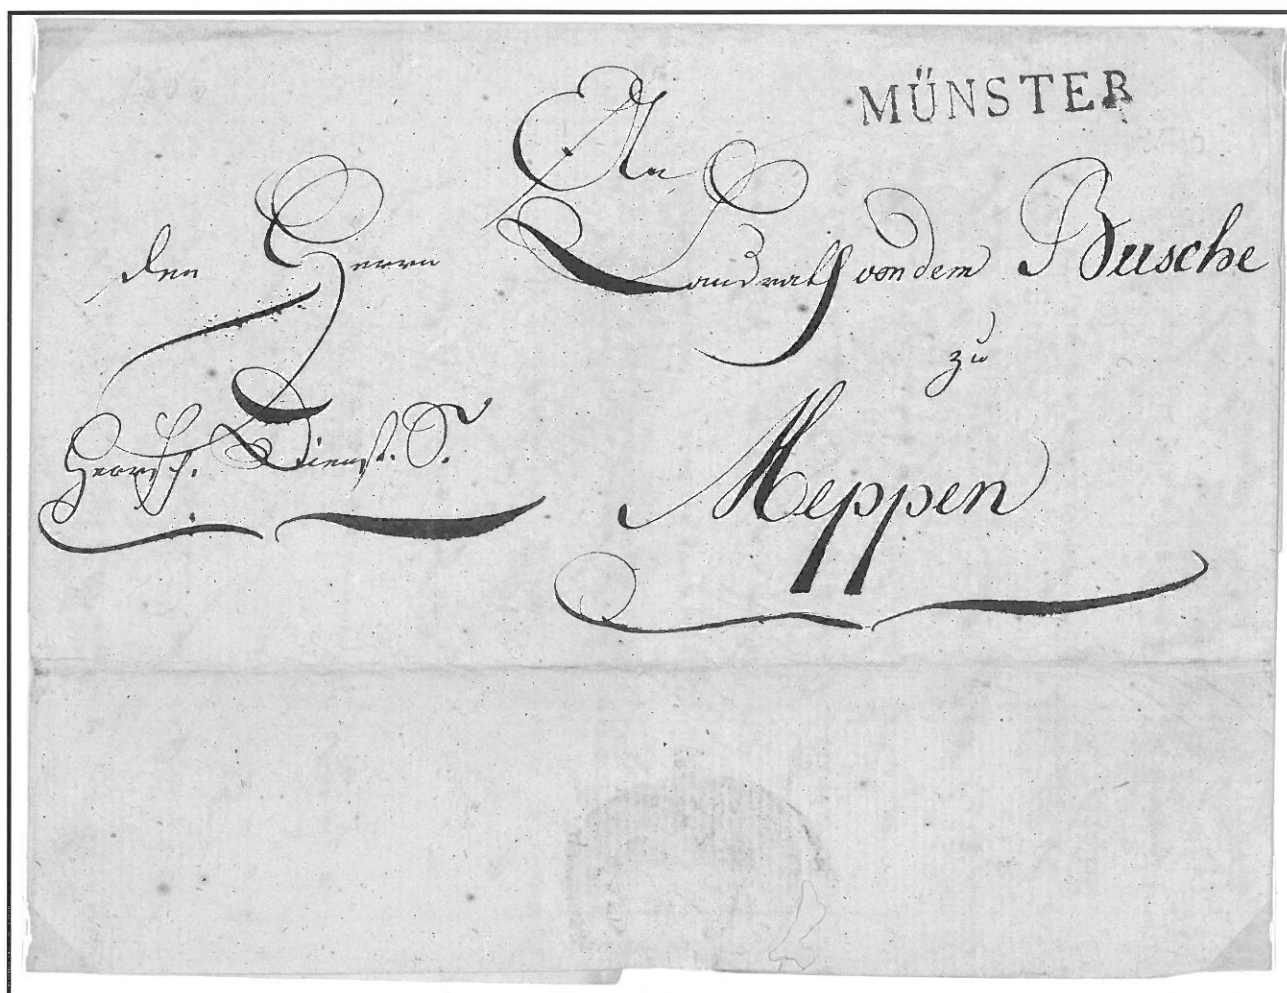 MÜNSTER
An
den Herrn Landrath von dem Busche
zu
Meppen
Herrsch. Dienst. S.